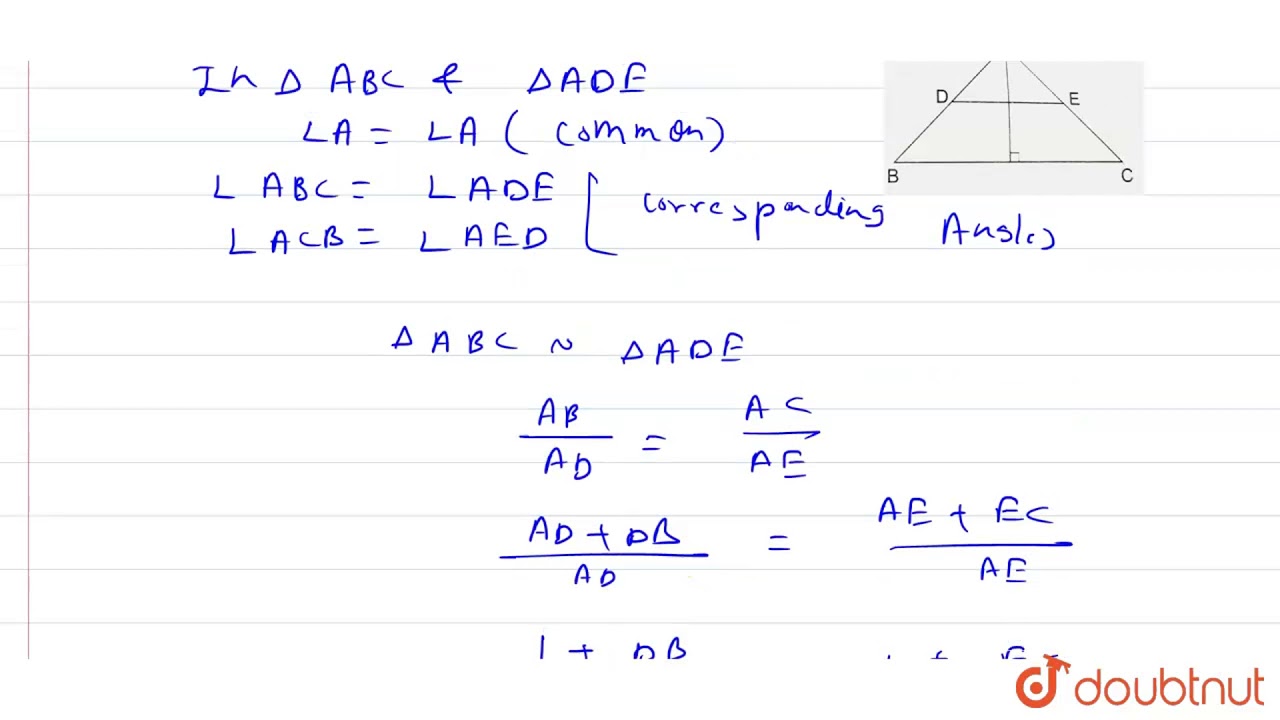 In Δ ABC & ΔADE
∠A = ∠A ( common)
∠ ABC = ∠ ADE
∠ ACB = ∠ AED
corresponding Angles
D E
B C
Δ ABC ~ ΔADE
AB/AD = AC/AE
AD + DB/AD = AE + EC/AE
1 + DB
doubtnut